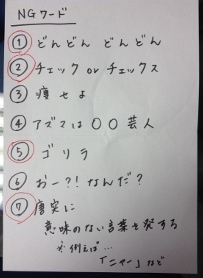 NGワード
① どんどん どんどん
② チェック or チェックス
③ 痩せよ
④ アズマは〇〇芸人
⑤ ゴリラ
⑥ おー?!なんだ?
⑦ 唐突に
意味のない言葉を発する
※例えば…
「ニャー」など